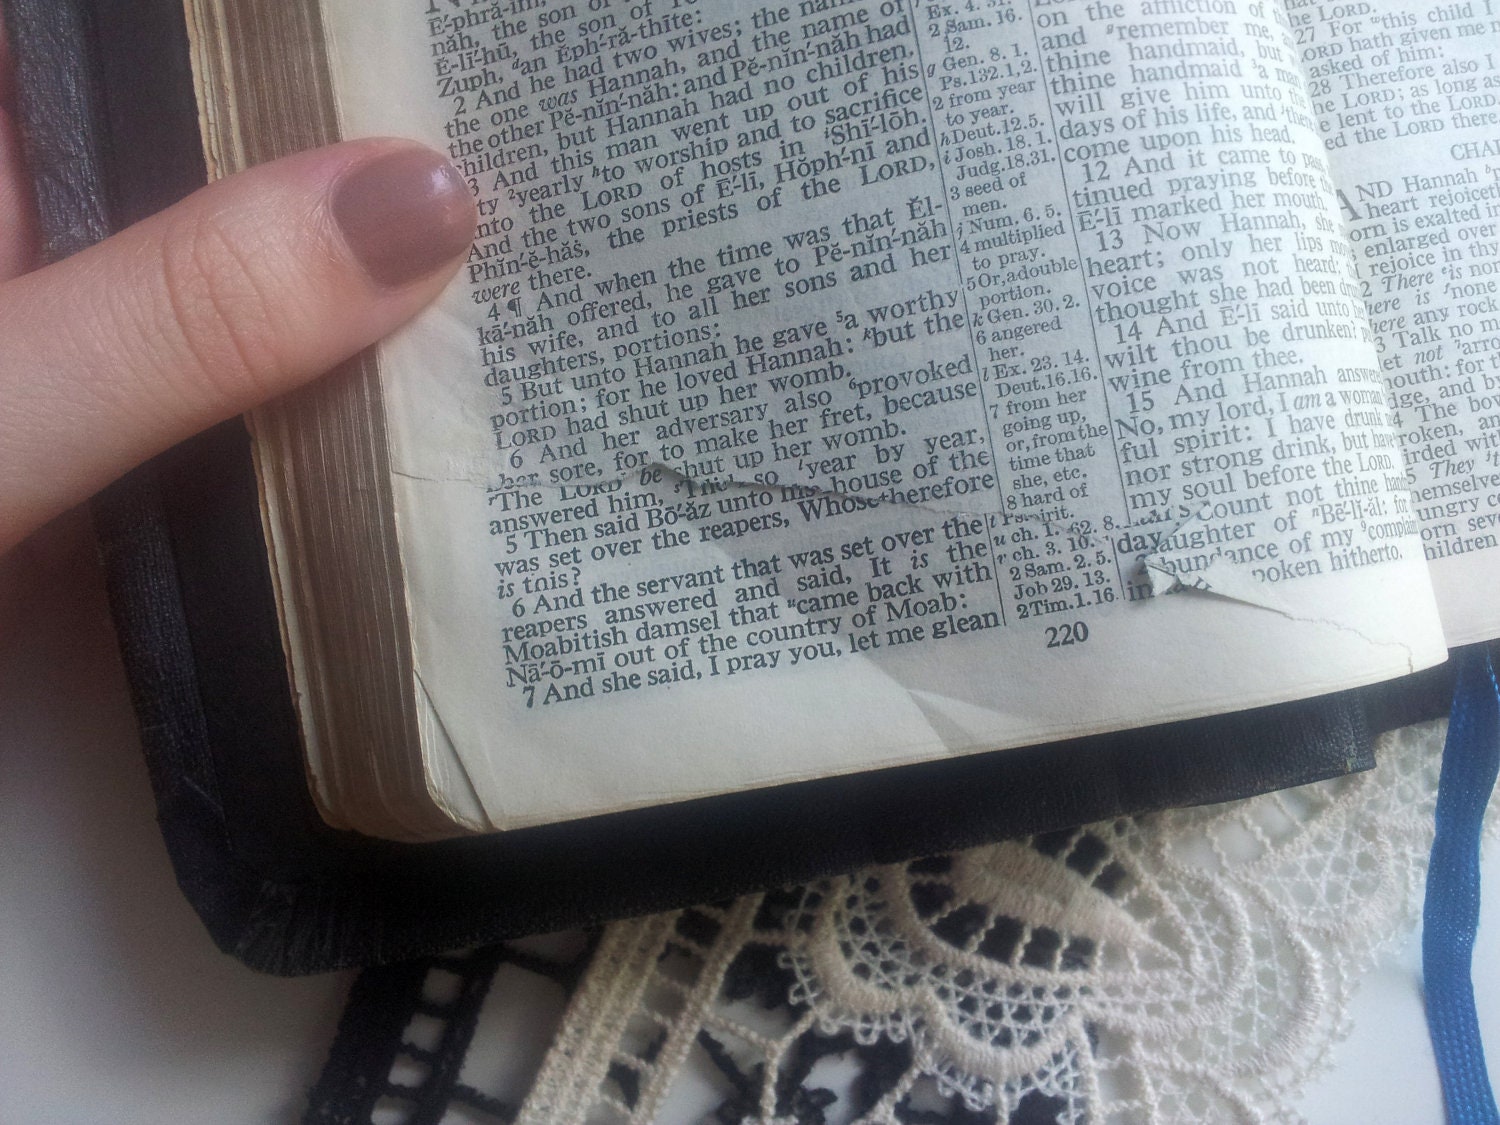 Ē´-phrā-im,
năh, the son of
Ē-lī´-hū, the son of
Zuph, an Ĕph´-ră-thīte:
2 And he had two wives; the name
the one was Hannah, and the name of
the other Pĕ-nĭn´-năh: and Pĕ-nĭn´-năh had
children, but Hannah had no children.
3 And this man went up out of his
ty ²yearly ʰto worship and to sacrifice
nto the LORD of hosts in ⁱShī´-lōh.
And the two sons of Ē´-lī, Hŏph´-nī and
Phĭn´-ĕ-hăs, the priests of the LORD,
were there.
4 ¶ And when the time was that Ĕl-
kā´-năh offered, he gave to Pĕ-nĭn´-năh
his wife, and to all her sons and her
daughters, portions:
5 But unto Hannah he gave ⁵a worthy
portion; for he loved Hannah: ᵏbut the
LORD had shut up her womb.
6 And her adversary also ⁶provoked
her sore, for to make her fret, because
shut up her womb.
so ˡyear by year,
The LORD be
answered him,
house of the
5 Then said Bō´-ăz unto his
was set over the reapers, Whose
therefore
is this?
6 And the servant that was set over the
reapers answered and said, It is the
Moabitish damsel that ᵘcame back with
Nā´-ō-mī out of the country of Moab:
7 And she said, I pray you, let me glean
Ex. 4. 31.
2 Sam. 16.
12.
g Gen. 8. 1.
Ps.132.1,2.
2 from year
to year.
h Deut.12.5.
i Josh. 18. 1.
Judg.18.31.
3 seed of
men.
j Num. 6. 5.
4 multiplied
to pray.
5 Or, a double
portion.
k Gen. 30. 2.
6 angered
her.
l Ex. 23. 14.
Deut.16.16.
7 from her
going up,
or, from the
time that
she, etc.
8 hard of
spirit.
u ch. 1.
62. 8.
v ch. 3. 10.
2 Sam. 2. 5.
Job 29. 13.
2 Tim. 1. 16.
220
on the affliction of
and remember me,
thine handmaid, but
thine handmaid ³a
will give him unto
days of his life, and
come upon his head.
12 And it came to
tinued praying before
Ē´-lī marked her mouth.
13 Now Hannah, she
heart; only her lips
voice was not heard:
thought she had been
14 And Ē´-lī said unto
wilt thou be drunken?
wine from thee.
15 And Hannah
No, my lord, I am a woman
ful spirit: I have drunk
nor strong drink, but
my soul before the LORD.
Count not thine
daughter of Bē´-lĭ-ăl: for
of my
spoken hitherto.
he LORD.
27 For this child I
ORD hath given me
asked of him:
28 Therefore also I
he LORD; as long as
e lent to the LORD.
ed the LORD there
CHA
AND Hannah
heart rejoiceth
orn is exalted in
enlarged over
I rejoice in thy
2 There is none
here is none
here any rock
3 Talk no
et not
outh: for
dge, and
4 The bow
roken, an
irded with
5 They
hemselve
ungry
orn seve
hildren